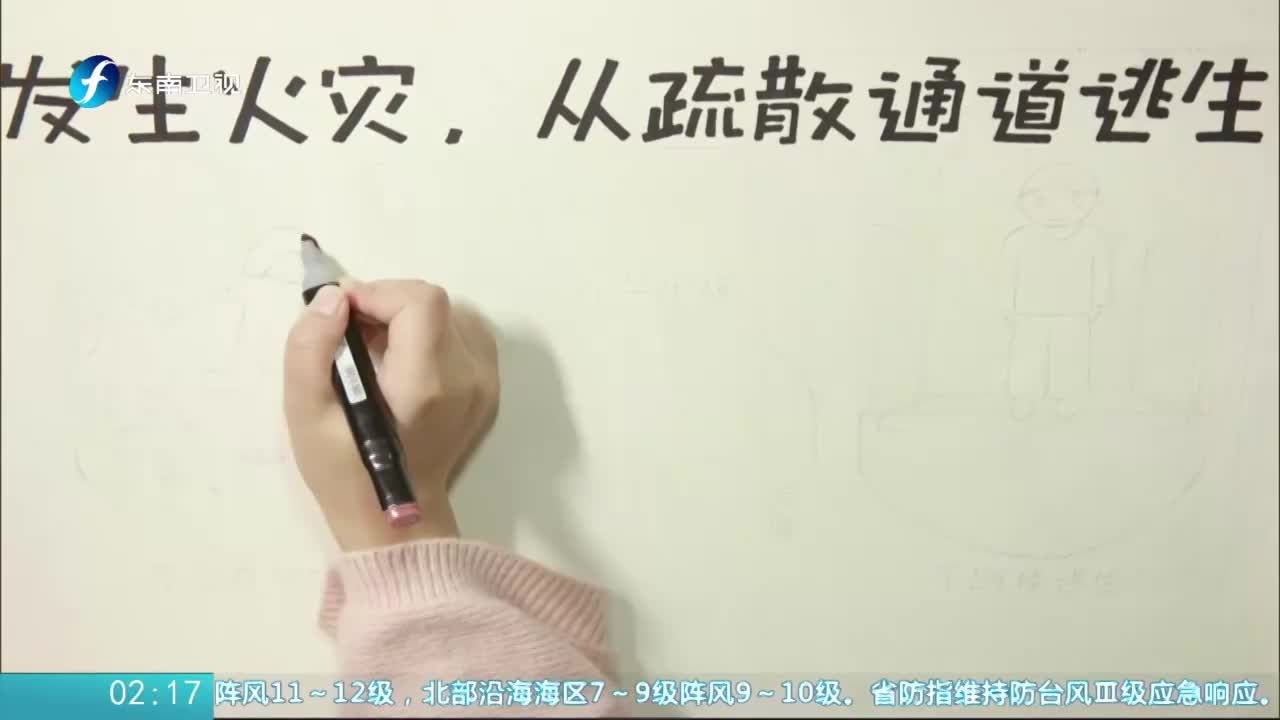 发生火灾，从疏散通道逃生
东南卫视
02:17
阵风11～12级，北部沿海海区7～9级阵风9～10级。省防指维持防台风Ⅲ级应急响应。